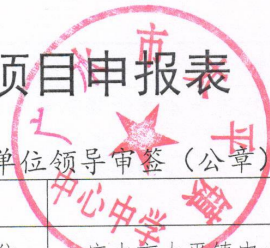 项目申报表
单位领导审签（公章）
市太平镇
中心中学